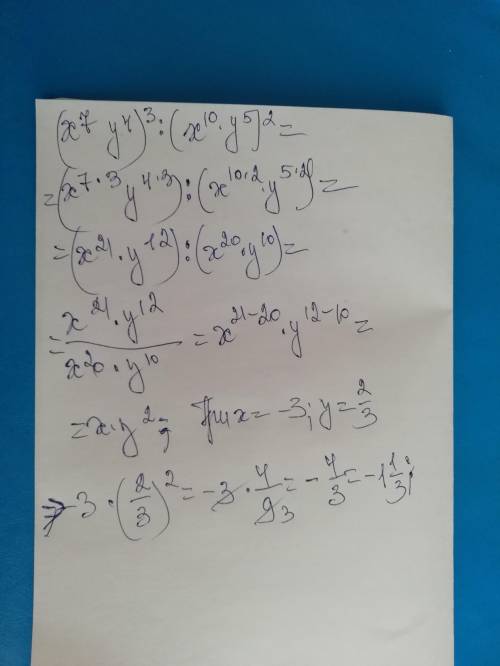 (x⁷ y⁴)³:(x¹⁰·y⁵)²=
=(x⁷·³ y⁴·³):(x¹⁰·²·y⁵·²)=
=(x²¹·y¹²):(x²⁰·y¹⁰)=
=x²¹·y¹²/x²⁰·y¹⁰=x²¹⁻²⁰·y¹²⁻¹⁰=
=x·y²; При x=-3; y=2/3
=-3·(2/3)²=-3·4/9 3=-4/3=-1 1/3;